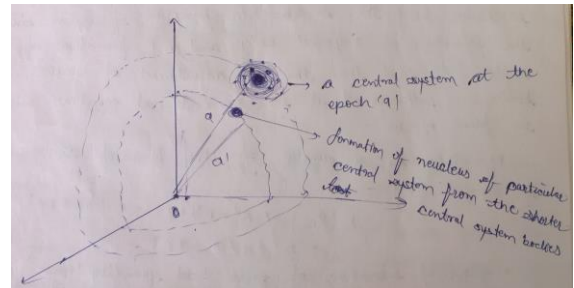 a central system at the
epoch 'a'
formation of neucleus of particular
central system from the shorter
central system bodies
a
a'
O